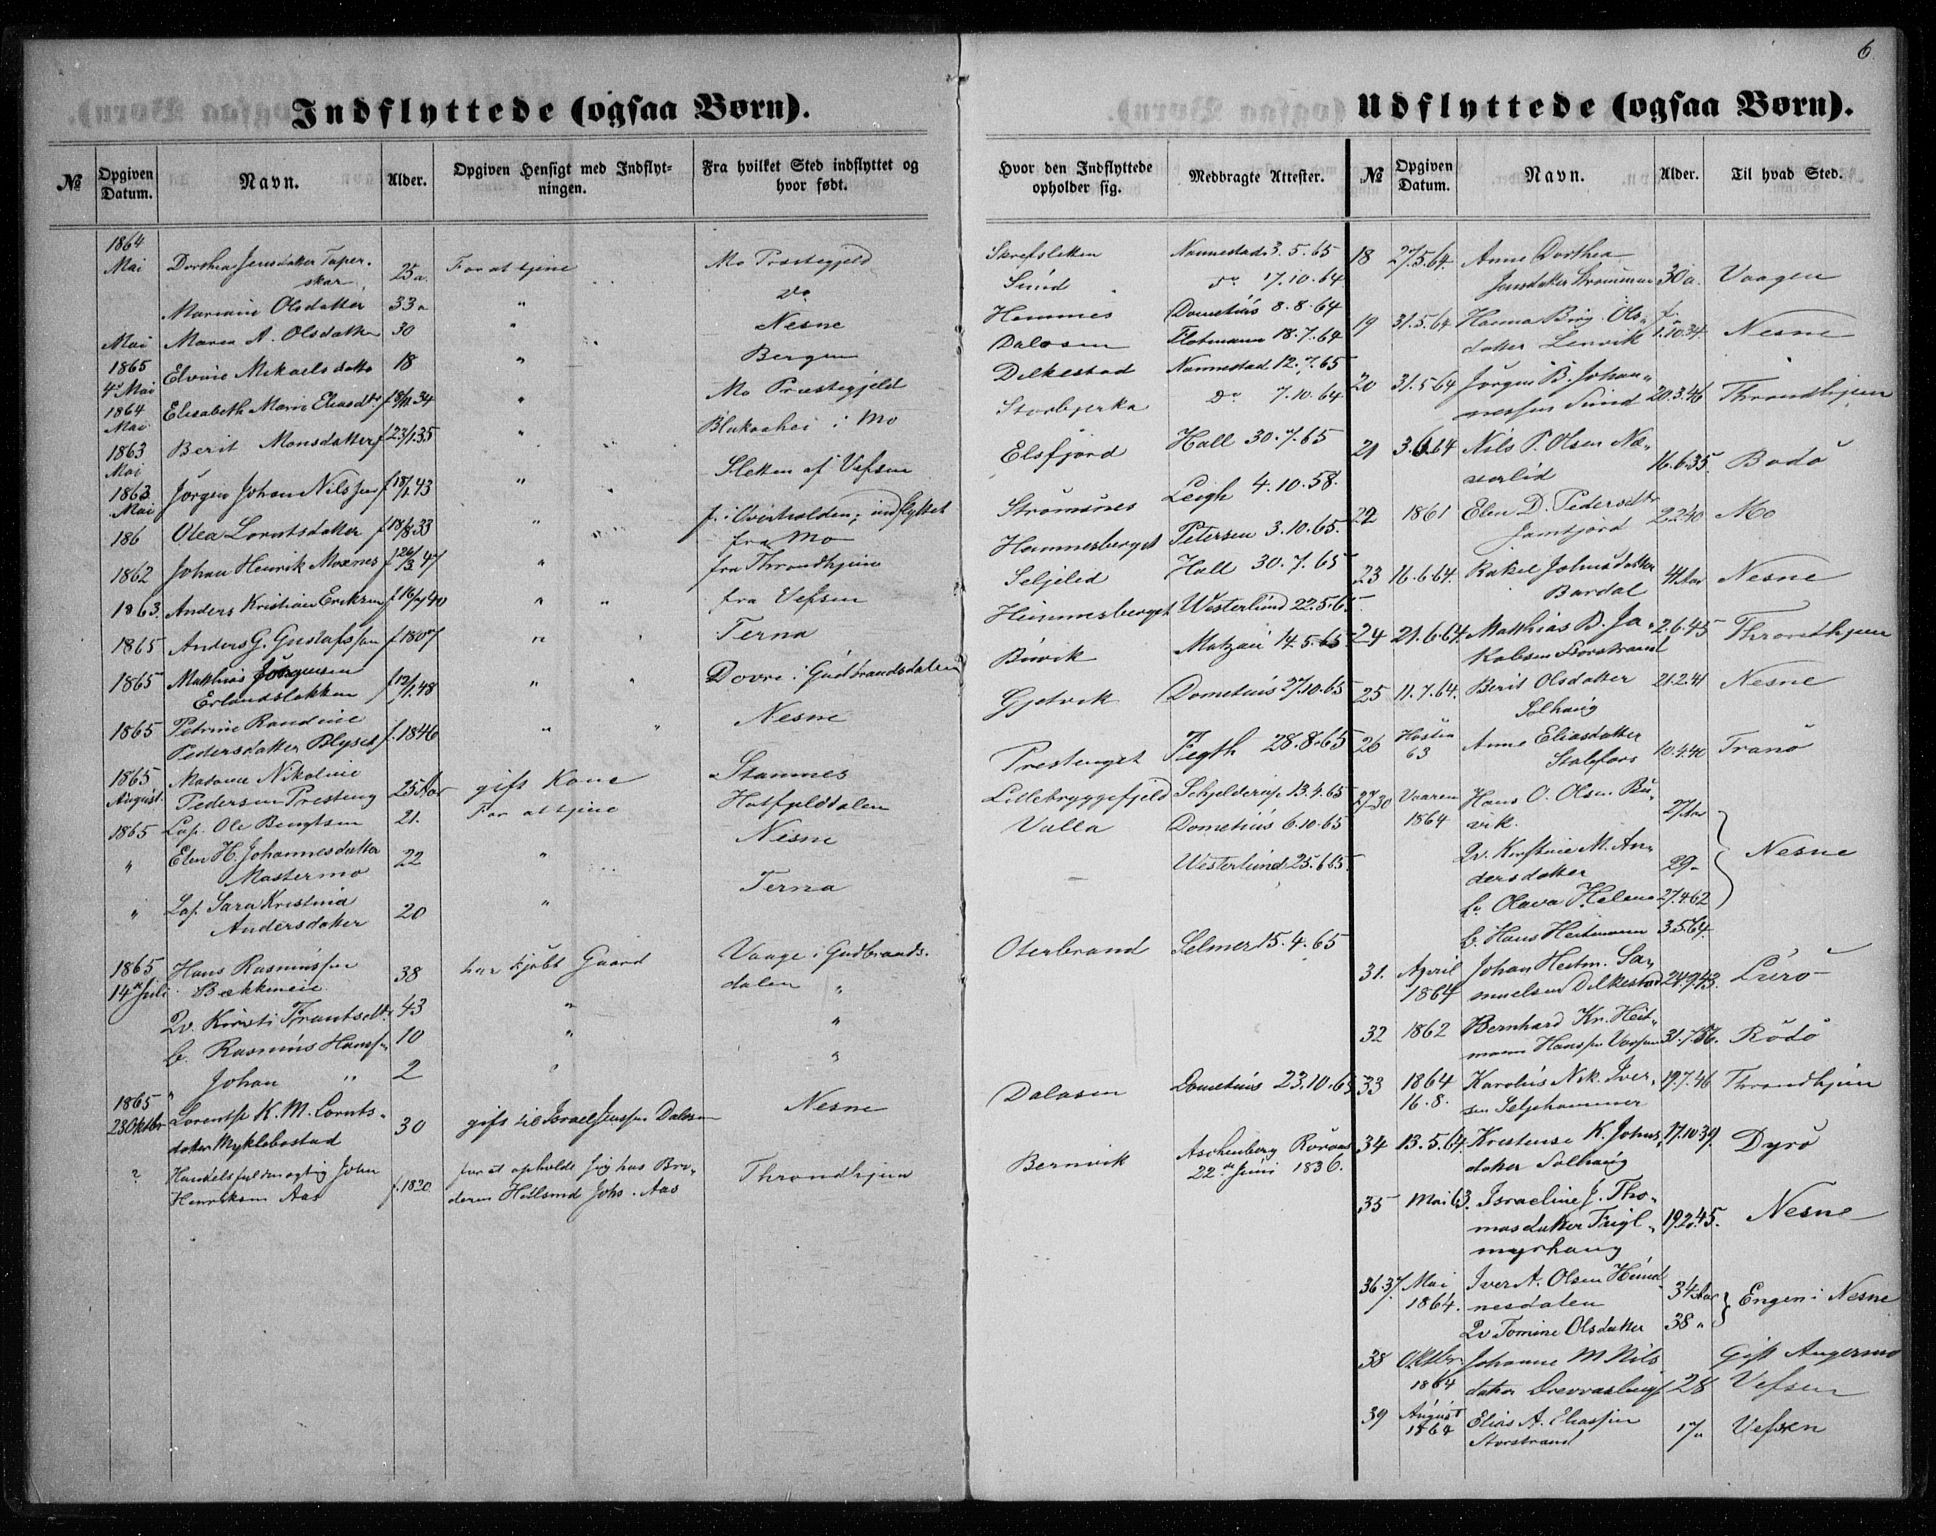 6
Indflyttede (ogsaa Børn).
№
Opgiven Datum.
Navn.
Alder.
Opgiven Hensigt med Indflyt-
ningen.
Fra hvilket Sted indflyttet og
hvor født.
Hvor den Indflyttede
opholder sig.
Medbragte Attester.
1864
Mai Dorthea Jensdatter Taper-
skar 25a. For at tjene Mo Præstegjeld Skrefsletten Nannestad 3.5.65
Mariane Olsdatter 33a " Do Sund Do 17.10.64
Mai Maren A. Olsdatter 30 " Nesne Hemnes Dometius 8.8.64
1865 Elvine Mikaelsdatter 18 " Bergen Dalosen Flotmann 18.7.64
4de Mai
1864 Elisabeth Marie Eliasdtr 34 " Mo Præstegjeld Dilkestad Nannestad 12.7.65
Mai
1863 Berit Monsdatter f 23/1 35 " i Mo Storbjerka Do 7.10.64
Mai
1863 Jørgen Johan Nilssen f 18/1 43 " Sletten af Vefsen Elsfjord Hall 30.7.65
Mai
186 Olea Lorntsdatter f 18/8 33 " f. i Overhalden; indflyttet
fra Mo Strømsnes Leigh 4.10.58.
1862 Johan Henrik Moxnes f 26/3 47 " fra Throndhjem Hemnesberget Petersen 3.10.65.
1863. Anders Kristian Eriksen f 16/ 40 " " fra Vefsen Seljelid Hall 30.7.65
1865 Anders G. Gustafssen f 1807 " " Terna Hemnesberget Westerlund 22.5.65.
1865 Matthias Jørgensen
Erlandsløkken f 12/1 48 " " Dovre i Gudbrandsdalen Bivik Matzau 14.5.65
1865 Petrine Randine
Pedersdatter f. 1846 " " Nesne Gjetvik Dometius 27.10.65
1865 Madame Nikoline
August Pedersen Presteng 25 Aar gift Kone Stamnes Prestenget Fegth 28.8.65
1865 Lap. Ole Bengtsen 21. For at tjene Hatfjelddalen Lillebryggefjeld Schjelderup 13.4.65
" Elen H. Johannesdatter
Mastermo 22 " Nesne Valla Dometius 6.10.65
" Lap. Sara Kristina
Andersdatter 20 " Terna Westerlund 25.6.65.
1865 Hans Rasmussen
14de Juli Bækkeneie 38 har kjøbt Gaard Vaage i Gudbrands-
dalen " Oterbrand Selmer 15.4.65
Qv. Kirsti Frantsdtr. 43 " "
b. Rasmus Hanssen 10 " "
" Johan " 2 "
1865
23 Oktbr Lorentse K. M. Lornts-
datter Myklebostad 30 gift til Israel Jenssen Dalosen Nesne Dalosen Dometius 23.10.65
? Handelsfuldmægtig Johan
Henriksen Aas f. 1820 for at opholde sig hos Bro-
deren Johs. Aas Throndhjem Bernvik Aschenberg Røraas
22de Juni 1836.
Udflyttede (ogsaa Børn).
№
Opgiven Datum.
Navn.
Alder.
Til hvad Sted.
18 27.5.64. Anne Dorthea
Jensdatter 30a. Vaagen
19 31.5.64 Hanna Birg. Ols-
datter Lenvik f. 1.10.34. Nesne
20 31.5.64 Jørgen B. Johan-
nessen Sund 20.3.46 Throndhjem
21 3.6.64 Nils P. Olsen Næ-
verlid 16.6.35. Bodø
22 1861 Elen D. Pedersdtr
Jamtjord 2.2.40 Mo
23 16.6.64. Rakel Johnsdatter
Bardal 41 Aar Nesne
24 21.6.64. Matthias B. Ja-
kobsen Storstrand 2.6.45 Throndhjem
25 11.7.64. Berit Olsdatter
Solhaug 21.2.41 Nesne
26 Høsten
63 Anne Eliasdatter
Stolefors 10.4.40 Tranø
27-30 Vaaren
1864 Hans O. Olsen Bu-
vik. 27 Aar
Qv. Kirstine M. An-
dersdatter 29- Nesne
b. Olava Helena 27.4.62
b. Hans Heitmann 3.5.64.
31. April
1864 Johan Heitm. Sa-
muelsen Dilkestad 24.9.43. Lurø
32 1862 Bernhard Kr. Heit-
mann Hanssen 31.7.36. Rødø
33 1864
16.8. Karolus Nik. Iver-
sen Seljehammer 19.7.46 Throndhjem
34 13.5.64. Kristense K. Johns-
datter Solhaug 17.10.39 Dyrø
35 Mai 63. Israeline J. Tho-
masdatter Fugl-
myrhaug 19.2.45. Nesne
36.37 Mai
1864. Iver A. Olsen Hund-
nesdalen 34 Aar Engen i Nesne
Qv Tomine Olsdatter 38 "
38 Oktbr.
1864 Johanne M Nils
datter 28 Gift Angermo
Vefsen
39 August
1864 Elias A. Eliassen
Storstrand 17 Vefsen